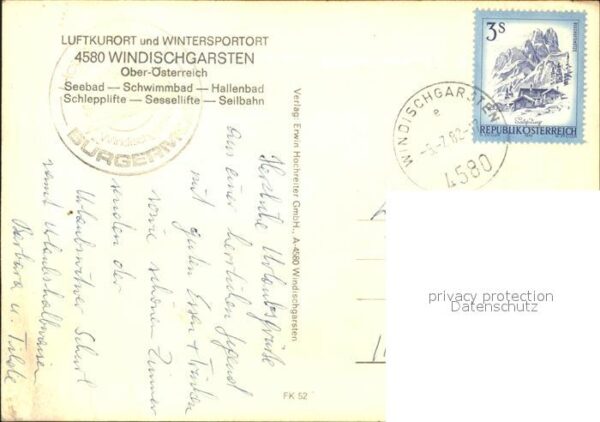 LUFTKURORT und WINTERSPORTORT
4580 WINDISCHGARSTEN
Ober-Österreich
Seebad — Schwimmbad — Hallenbad
Schlepplifte — Sessellifte — Seilbahn
Windisch
BÜRGERM
Verlag: Erwin Hochreiter GmbH., A-4580 Windischgarsten
FK 52
3 S
REPUBLIK ÖSTERREICH
WINDISCHGARSTEN
e
4580
Herzliche Urlaubsgrüße
aus einer herrlichen Jugend
mit gutem Essen + Trinken
sowie schönem Zimmer
senden der
Urlaubswitwer
samt Urlaubshalbwaisen
Barbara u.
privacy protection
Datenschutz